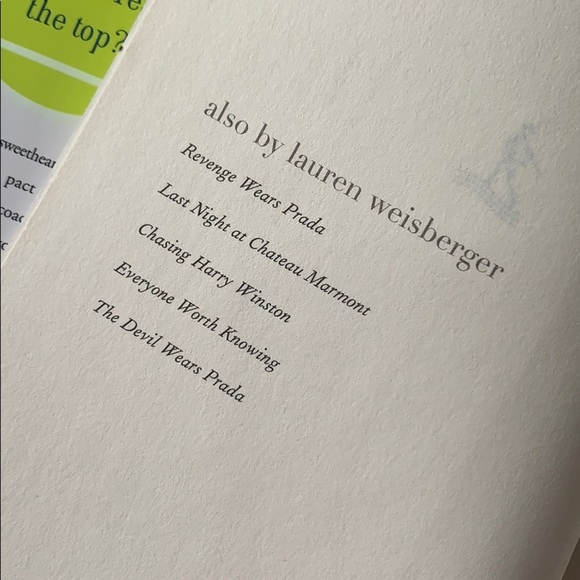 the top?
sweethear
pact
coac
also by lauren weisberger
Revenge Wears Prada
Last Night at Chateau Marmont
Chasing Harry Winston
Everyone Worth Knowing
The Devil Wears Prada